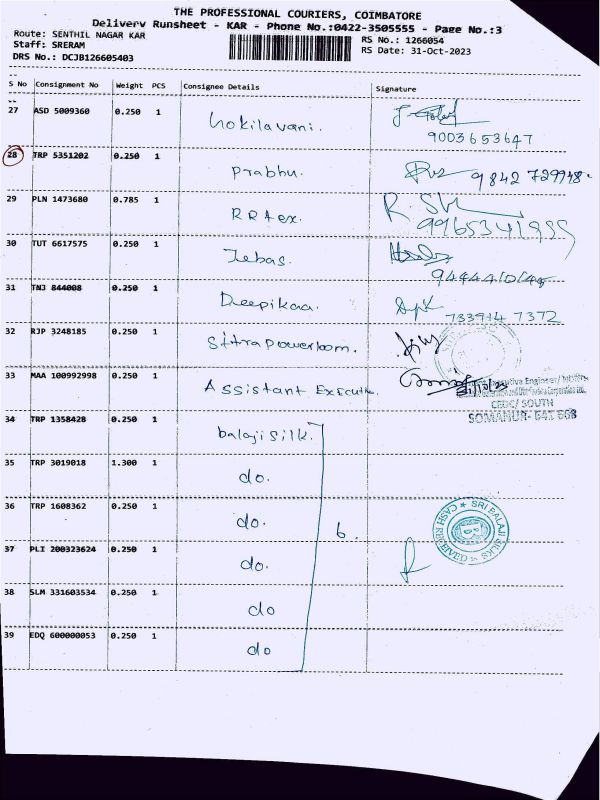 THE PROFESSIONAL COURIERS, COIMBATORE
Delivery Runsheet - KAR - Phone No.:0422-3505555 - Page No.:3
Route: SENTHIL NAGAR KAR
RS No.: 1266054
Staff: SRERAM
RS Date: 31-Oct-2023
DRS No.: DCJB126605403
S No Consignment No Weight PCS Consignee Details Signature
27 ASD 5009360 0.250 1 Lokilavani.
9003653647
28 TRP 5351202 0.250 1 Prabhu.
9842729948.
29 PLN 1473680 0.785 1 RRtex.
30 TUT 6617575 0.250 1 Jebas.
31 TNJ 844008 0.250 1 Deepikaa.
7339147372
32 RJP 3248185 0.250 1 Sitrapowerloom.
33 MAA 100992998 0.250 1 Assistant Executive
CEDC/ SOUTH
SOMANUR- 641 668
34 TRP 1358428 0.250 1 balajisilk.
35 TRP 3019018 1.300 1 do.
36 TRP 1608362 0.250 1 do. 6.
SRI BALAJI SILKS ★ CASH RECEIVED ★
37 PLI 200323624 0.250 1 do.
38 SLM 331603534 0.250 1 do
39 EDQ 600000053 0.250 1 do